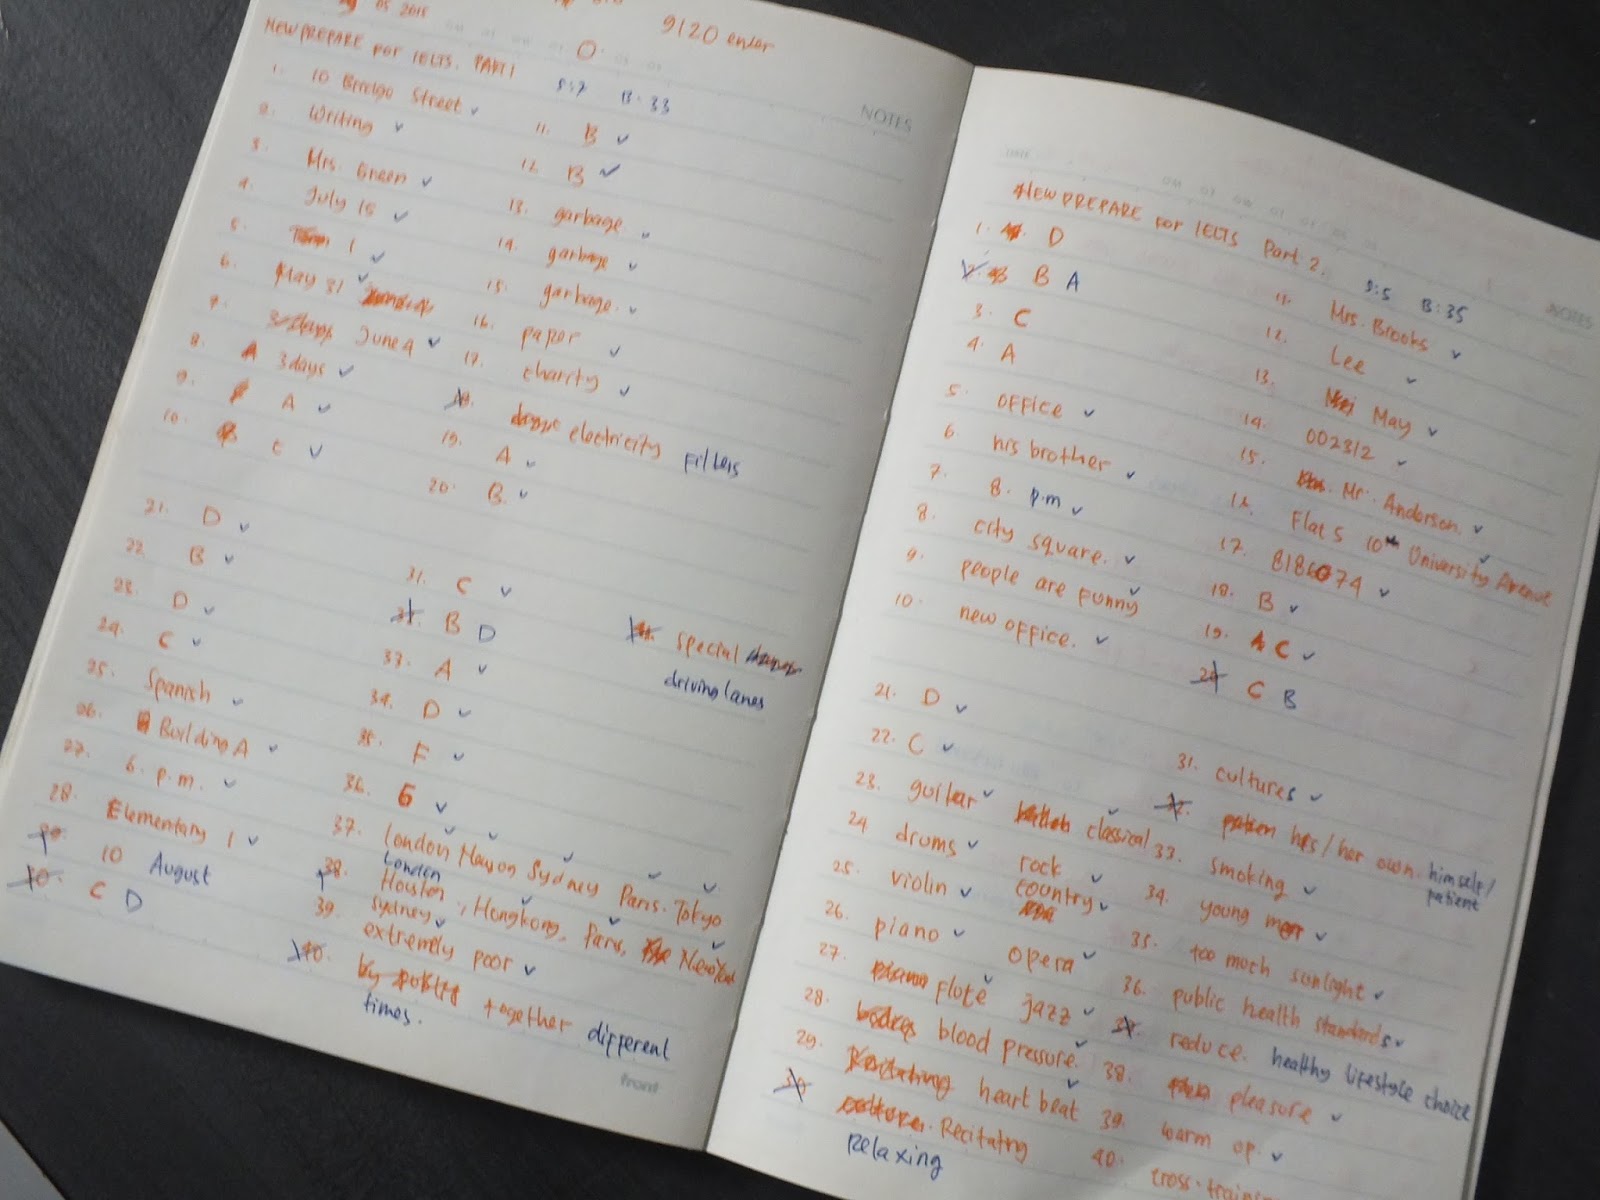 05 2015
9120 enter
NEW PREPARE FOR IELTS. PART 1
S:7 B:33
NOTES
1. 10 Bridge Street ✓
2. Writing ✓
3. Mrs. Green ✓
4. July 15 ✓
5. Term 1 ✓
6. May 31 ✓
7. 3 days June 4 ✓
8. A 3 days ✓
9. A ✓
10. B C ✓
11. B ✓
12. B ✓
13. garbage ✓
14. garbage ✓
15. garbage. ✓
16. paper ✓
17. charity ✓
18. electricity Filters
19. A ✓
20. B. ✓
21. D ✓
22. B ✓
23. D ✓
24. C ✓
25. Spanish ✓
26. Building A ✓
27. 6. p.m. ✓
28. Elementary 1 ✓
29. 10 August
30. C D
31. C ✓
32. B D
33. A ✓
34. D ✓
35. F ✓
36. G ✓
37. London Sydney Paris. Tokyo
38. London Houston, Hongkong, Paris, New York
Sydney
39. extremely poor ✓
40. together different
times.
special
driving lanes
Front
DATE
NOTES
NEW PREPARE FOR IELTS Part 2.
S:5 B:35
1. D
2. B A
3. C
4. A
5. OFFICE ✓
6. his brother ✓
7. 8. p.m ✓
8. city square. ✓
9. people are funny ✓
10. new office. ✓
11. Mrs. Brooks ✓
12. Lee ✓
13. May ✓
14. 002312 ✓
15. Mr. Anderson. ✓
16. Flat 5 10th University Avenue ✓
17. 8186074 ✓
18. B ✓
19. A C ✓
20. C B
21. D ✓
22. C ✓
23. guitar ✓ classical ✓
24 drums ✓ rock ✓
25. violin ✓ country ✓
26. piano ✓ opera ✓
27. piano flute ✓ jazz ✓
28. blood pressure. ✓
29. heart beat ✓
30. Recitating
Relaxing
31. cultures ✓
32. his/her own. himself/
patient
33. smoking ✓
34. young men ✓
35. too much sunlight ✓
36. public health standards ✓
37. reduce. healthy lifestyle choice
38. pleasure ✓
39. warm op. ✓
40. cross-training